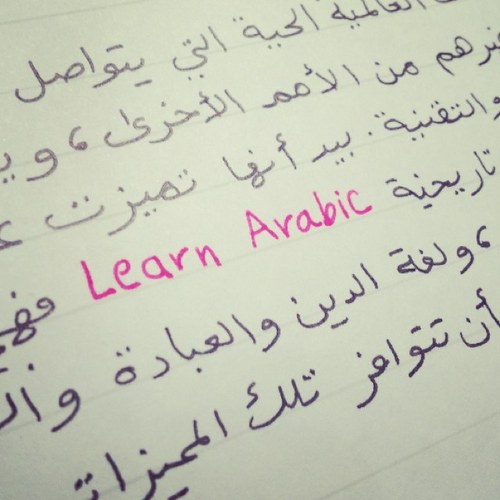 العالمية الحية التي يتواصل
من الأمم الأخرى، و
والتقنية. بيد أنها تميزت
تاريخية Learn Arabic فهي
، ولغة الدين والعبادة
أن تتوافر تلك المميزات